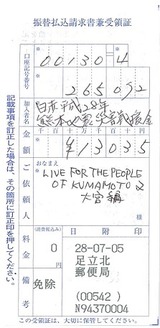 振替払込請求書兼受領証
口座記号番号
00130=4
265072
加入者名
日赤平成28年
熊本地震災害義援金
金額
¥13035
ご依頼人
おなまえ
LIVE FOR THE PEOPLE
OF KUMAMOTO 2
大宮編
料金
0
円
日附印
備考
免除
28-07-05
足立北
郵便局
(00542)
N94370004
この受領証は、大切に保管してください。
記載事項を訂正した場合は、その箇所に訂正印を押してください。